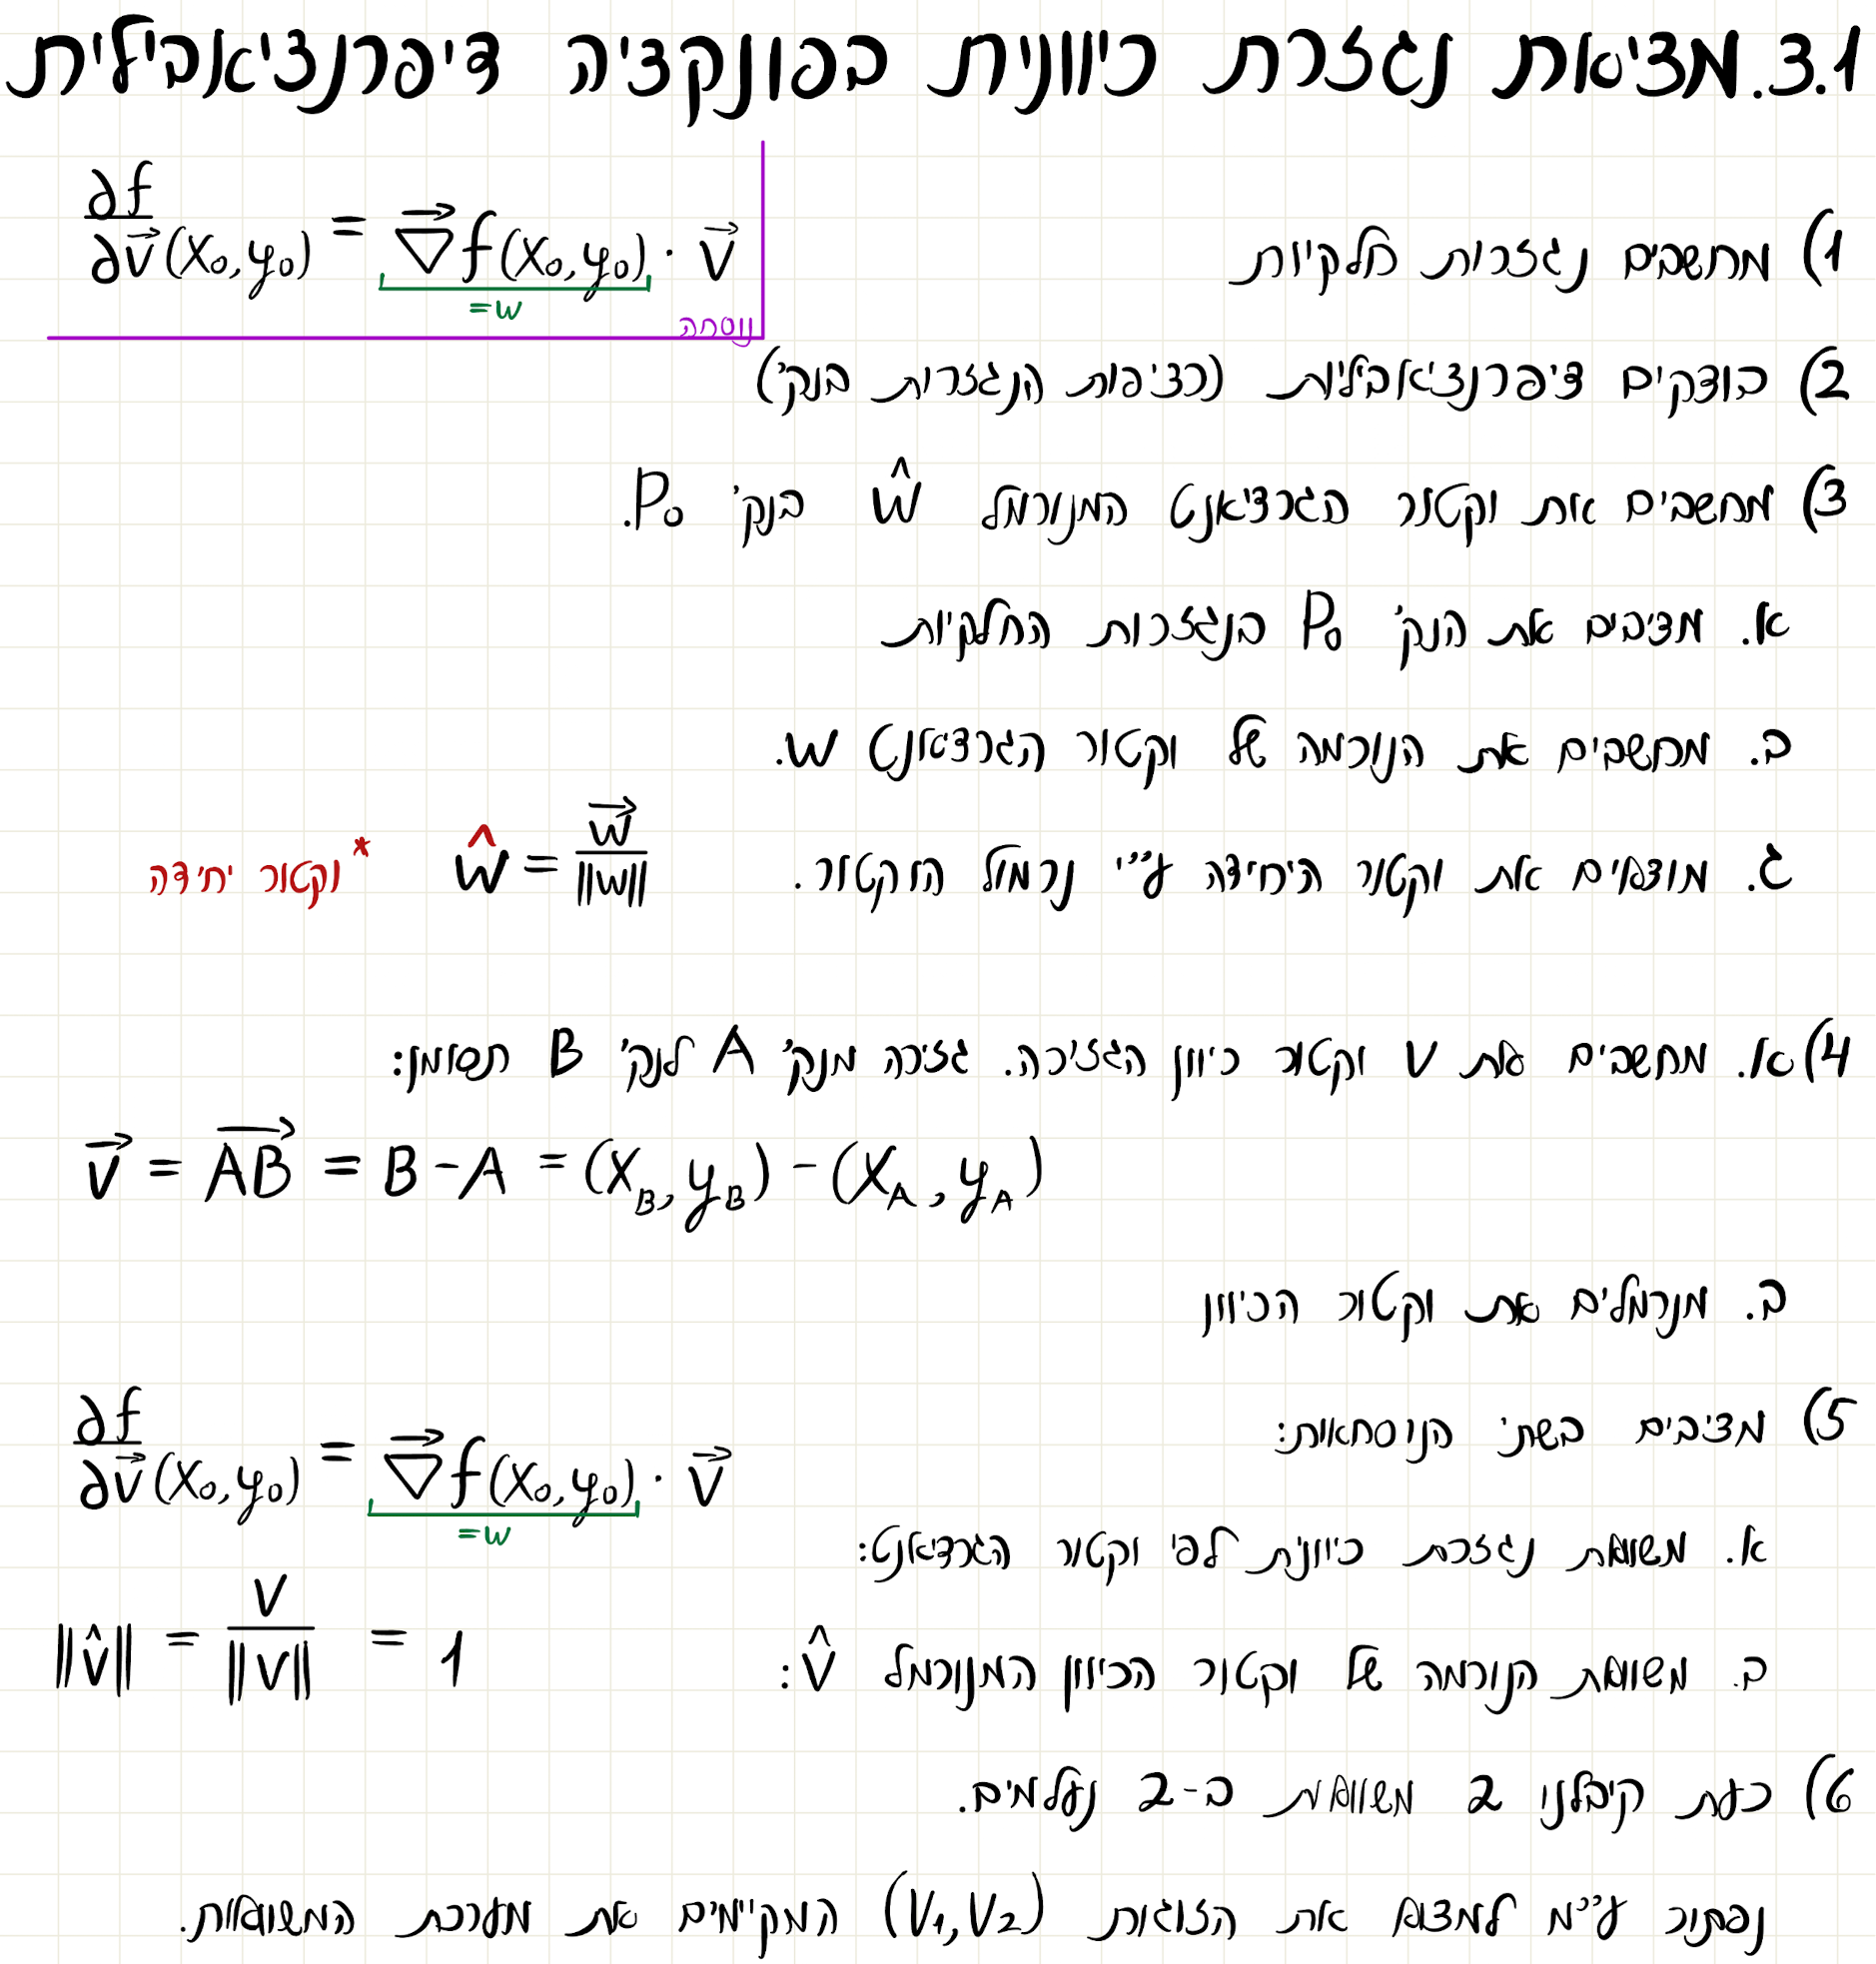 3.1. מציאת נגזרת כיוונית בפונקציה דיפרנציאבילית
1) מחשבים נגזרות חלקיות
∂f/∂v⃗ (x₀,y₀) = ∇⃗f(x₀,y₀) · v⃗
=w
נוסחה
2) בודקים דיפרנציאביליות (רציפות הנגזרות בנק')
3) מחשבים את וקטור הגרדיאנט המנורמל ŵ בנק' P₀.
א. מציבים את הנק' P₀ בנגזרות החלקיות
ב. מחשבים את הנורמה של וקטור הגרדיאנט w.
ג. מוצאים את וקטור היחידה ע"י נרמול הוקטור. ŵ = w⃗/||w|| *וקטור יחידה
4) א. מחשבים את v וקטור כיוון הגזירה. גזירה מנק' A לנק' B תסומן:
v⃗ = AB⃗ = B-A = (x_B, y_B) - (x_A, y_A)
ב. מנרמלים את וקטור הכיוון
5) מציבים בשתי הנוסחאות:
∂f/∂v⃗ (x₀,y₀) = ∇⃗f(x₀,y₀) · v⃗
=w
א. משוואת נגזרת כיוונית לפי וקטור הגרדיאנט:
ב. משוואת הנורמה של וקטור הכיוון המנורמל v̂: ||v̂|| = v/||v|| = 1
6) כעת קיבלנו 2 משוואות ב-2 נעלמים.
נפתור ע"מ למצוא את הזוגות (v₁,v₂) המקיימים את מערכת המשוואות.